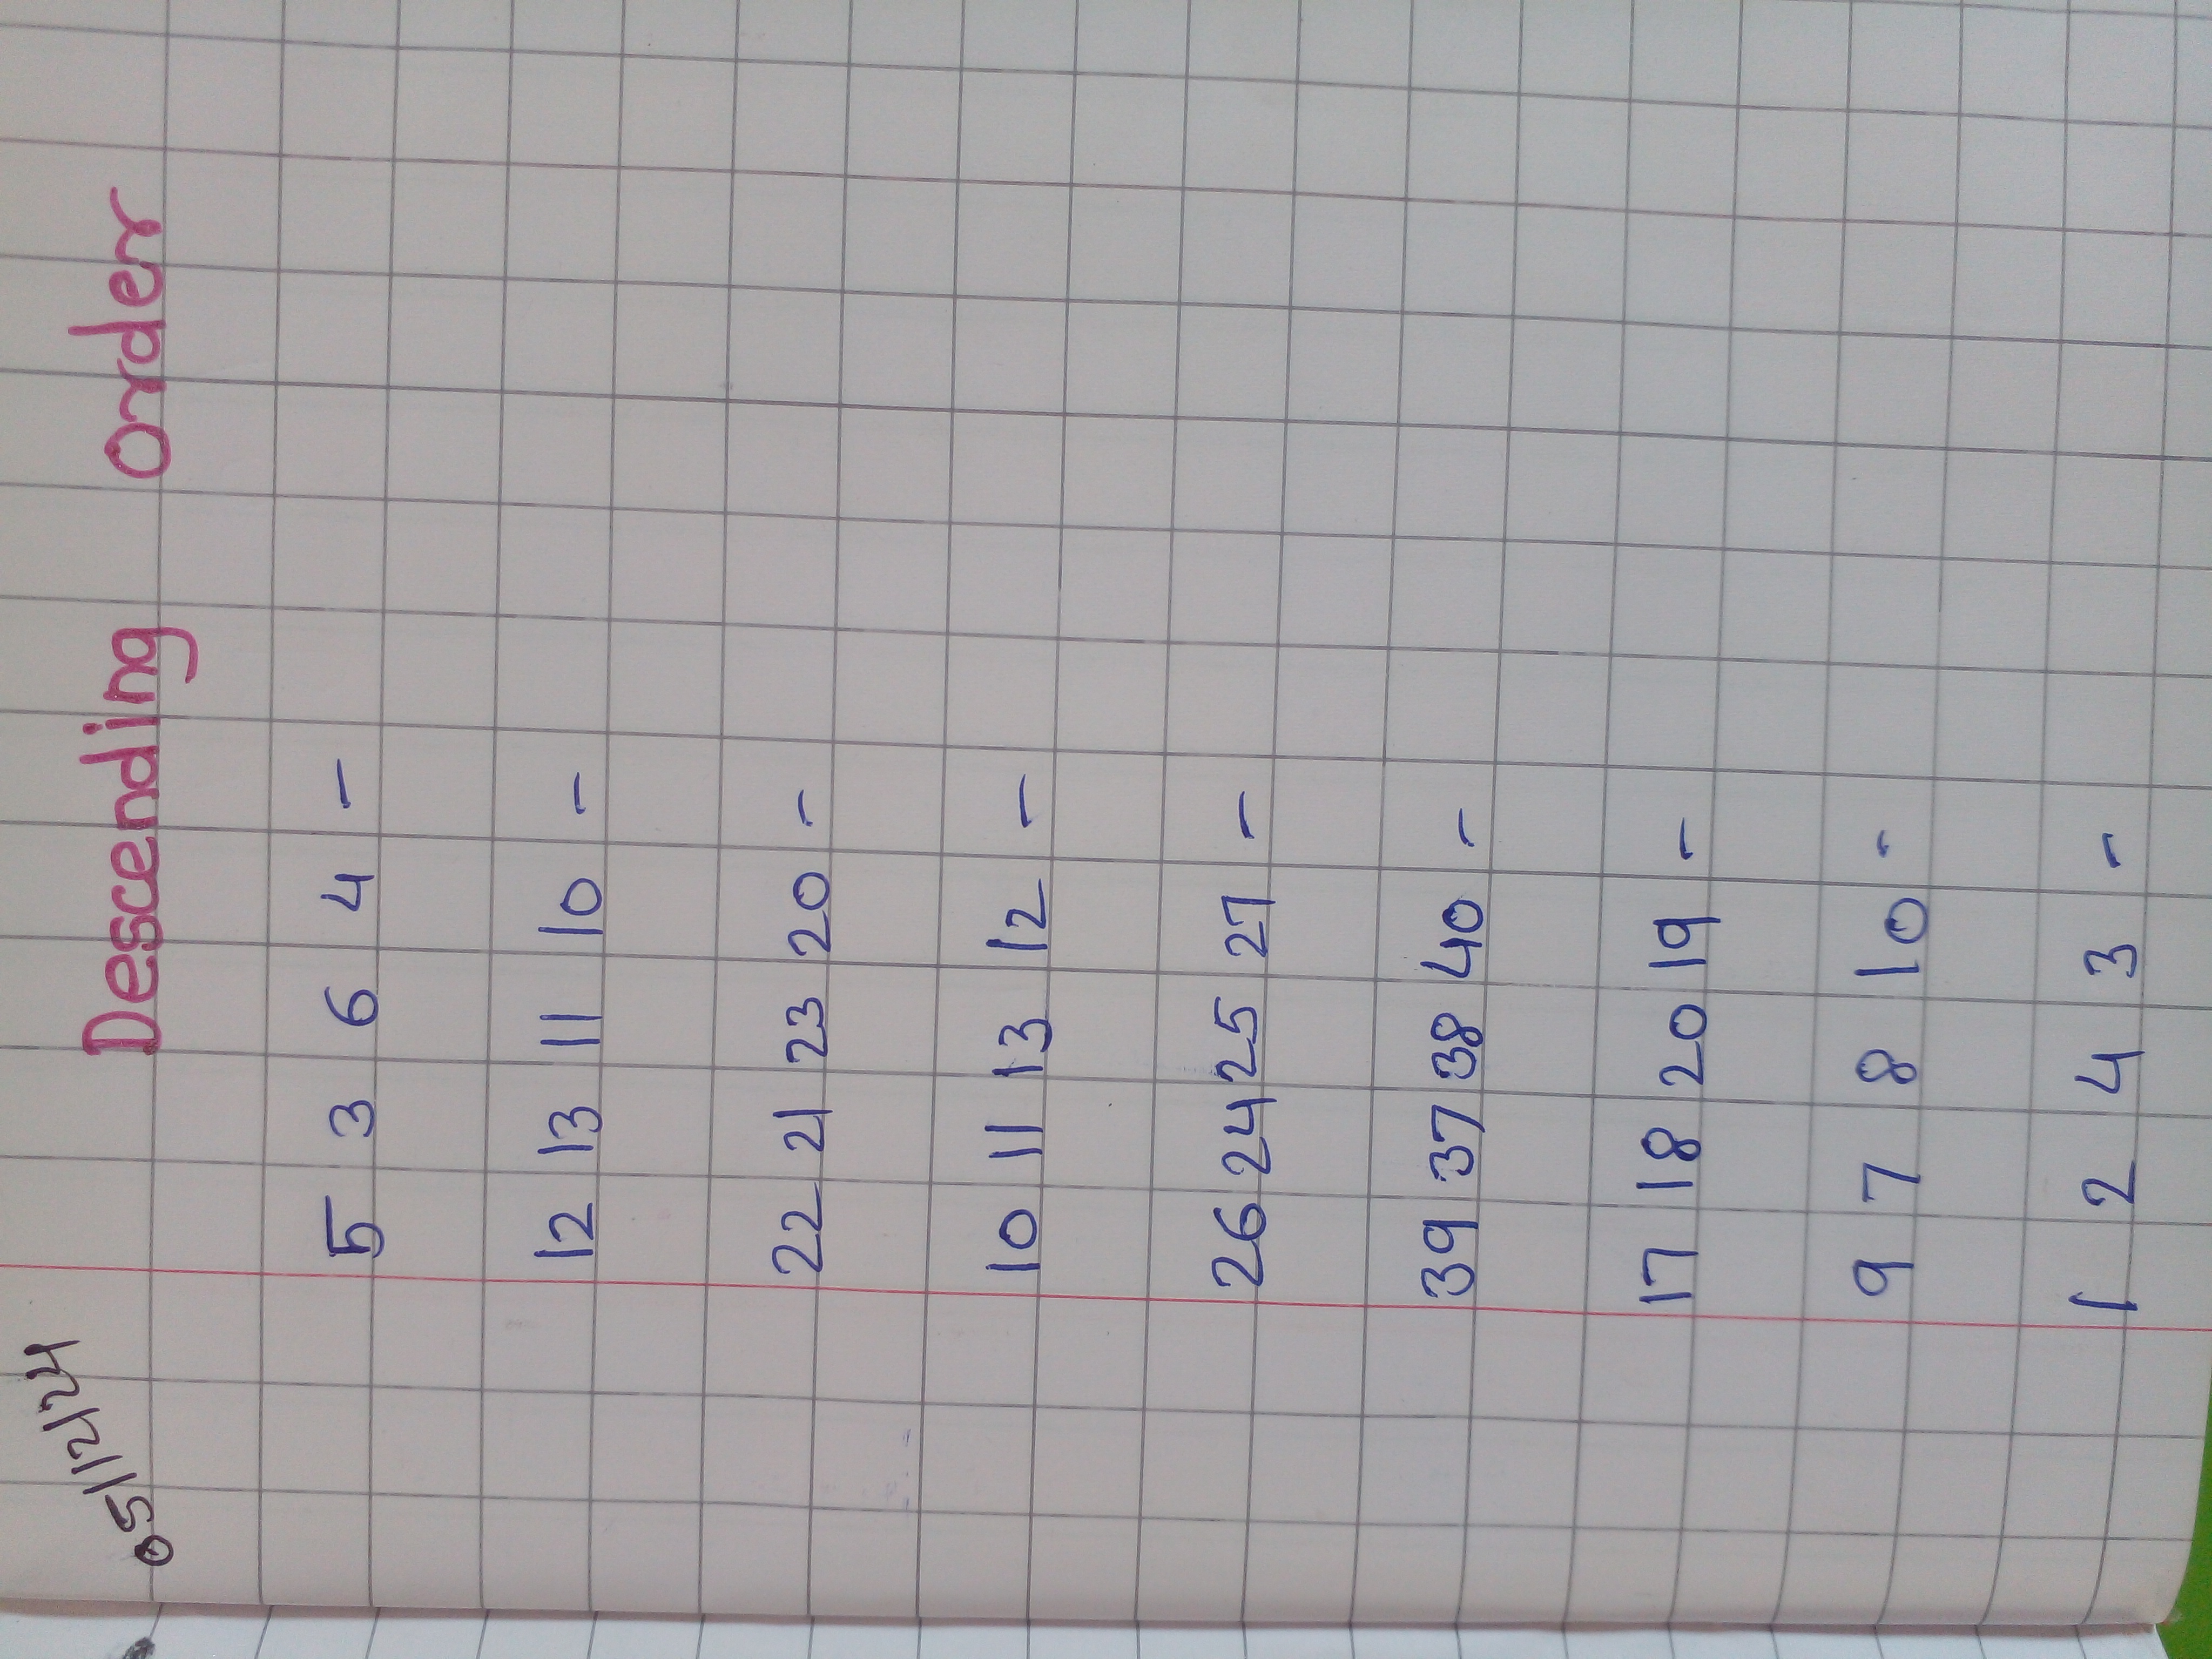 05/12/24
Descending order
5 3 6 4 -
12 13 11 10 -
22 21 23 20 -
10 11 13 12 -
26 24 25 27 -
39 37 38 40 -
17 18 20 19 -
9 7 8 10 -
1 2 4 3 -